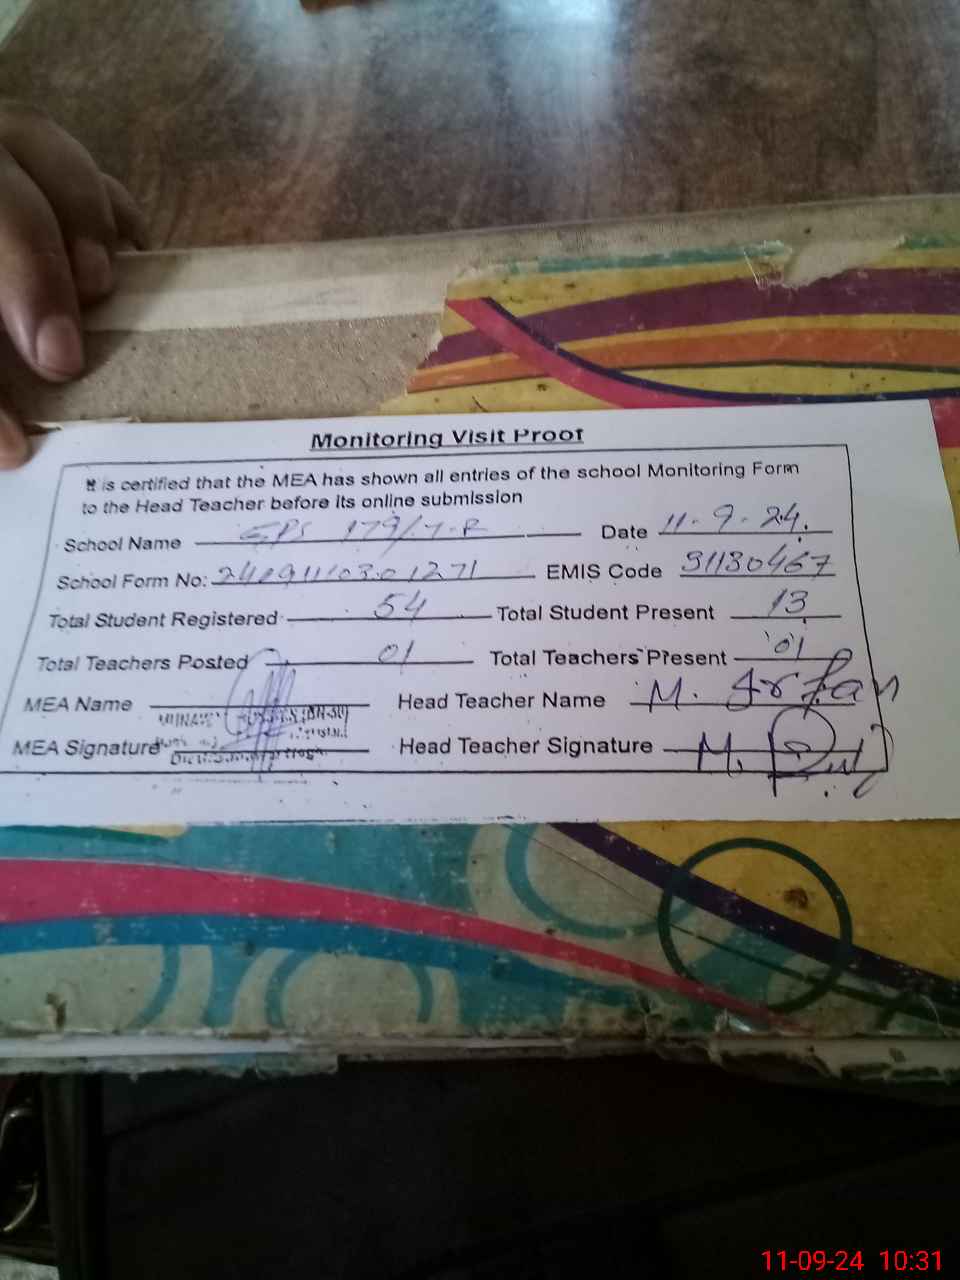 Monitoring Visit Proof
It is certified that the MEA has shown all entries of the school Monitoring Form
to the Head Teacher before its online submission
School Name GPS 179/7-R Date 11-9-24.
School Form No: EMIS Code 31130467
Total Student Registered 54 Total Student Present 13
Total Teachers Posted 01 Total Teachers Present 01
MEA Name Head Teacher Name M. Irfan
MEA Signature Head Teacher Signature M.
11-09-24 10:31